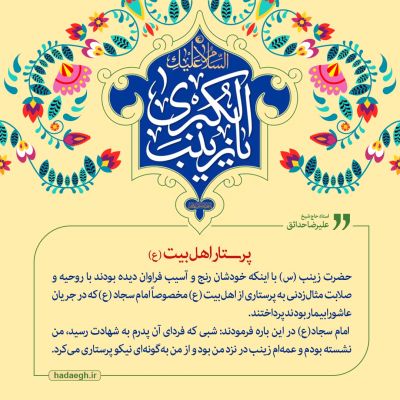 السلام علیک
یا زینب الکبری
استاد حاج شیخ
علیرضا حدائق
پرستار اهل بیت (ع)
حضرت زینب (س) با اینکه خودشان رنج و آسیب فراوان دیده بودند با روحیه و
صلابت مثال‌زدنی به پرستاری از اهل‌بیت (ع) مخصوصاً امام سجاد (ع) که در جریان
عاشورا بیمار بودند پرداختند.
امام سجاد(ع) در این باره فرمودند: شبی که فردای آن پدرم به شهادت رسید، من
نشسته بودم و عمه‌ام زینب در نزد من بود و از من به گونه‌ای نیکو پرستاری می‌کرد.
hadaegh.ir